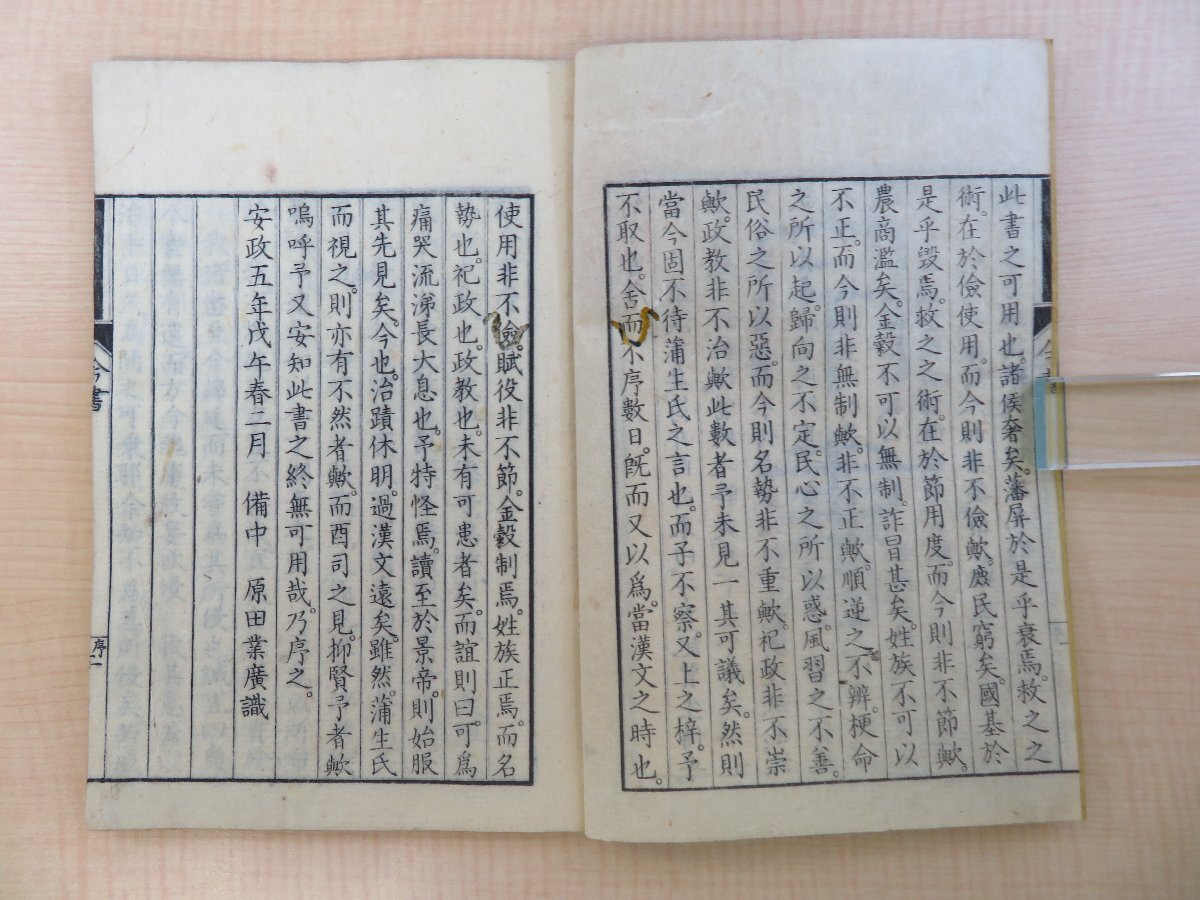 此書之可用也。諸侯奢矣。藩屏於是乎衰焉。救之之
術。在於儉使用。而今則非不儉歟。庶民窮矣。國基於
是乎毀焉。救之之術。在於節用度。而今則非不節歟。
農商濫矣。金穀不可以無制。詐冒甚矣。姓族不可以
不正。而今則非無制歟。非不正歟。順逆之不辨。梗命
之所以起。歸向之不定。民心之所以惑。風習之不善。
民俗之所以惡。而今則名勢非不重歟。祀政非不崇
歟。政教非不治歟。此數者予未見一其可議矣。然則
當今固不待蒲生氏之言也。而子不察。又上之梓。予
不取也。舍而不序數日。既而又以爲當漢文之時也。
使用非不儉。賦役非不節。金穀制焉。姓族正焉。而名
勢也。祀政也。政教也。未有可患者矣。而誼則曰。可爲
痛哭流涕長大息也。予特怪焉。讀至於景帝。則始服
其先見矣。今也。治蹟休明。過漢文遠矣。雖然。蒲生氏
而視之。則亦有不然者歟。而酉司之見。抑賢予者歟
嗚呼予又安知此書之終無可用哉。乃序之。
安政五年戊午春二月 備中 原田業廣識
今書
序一